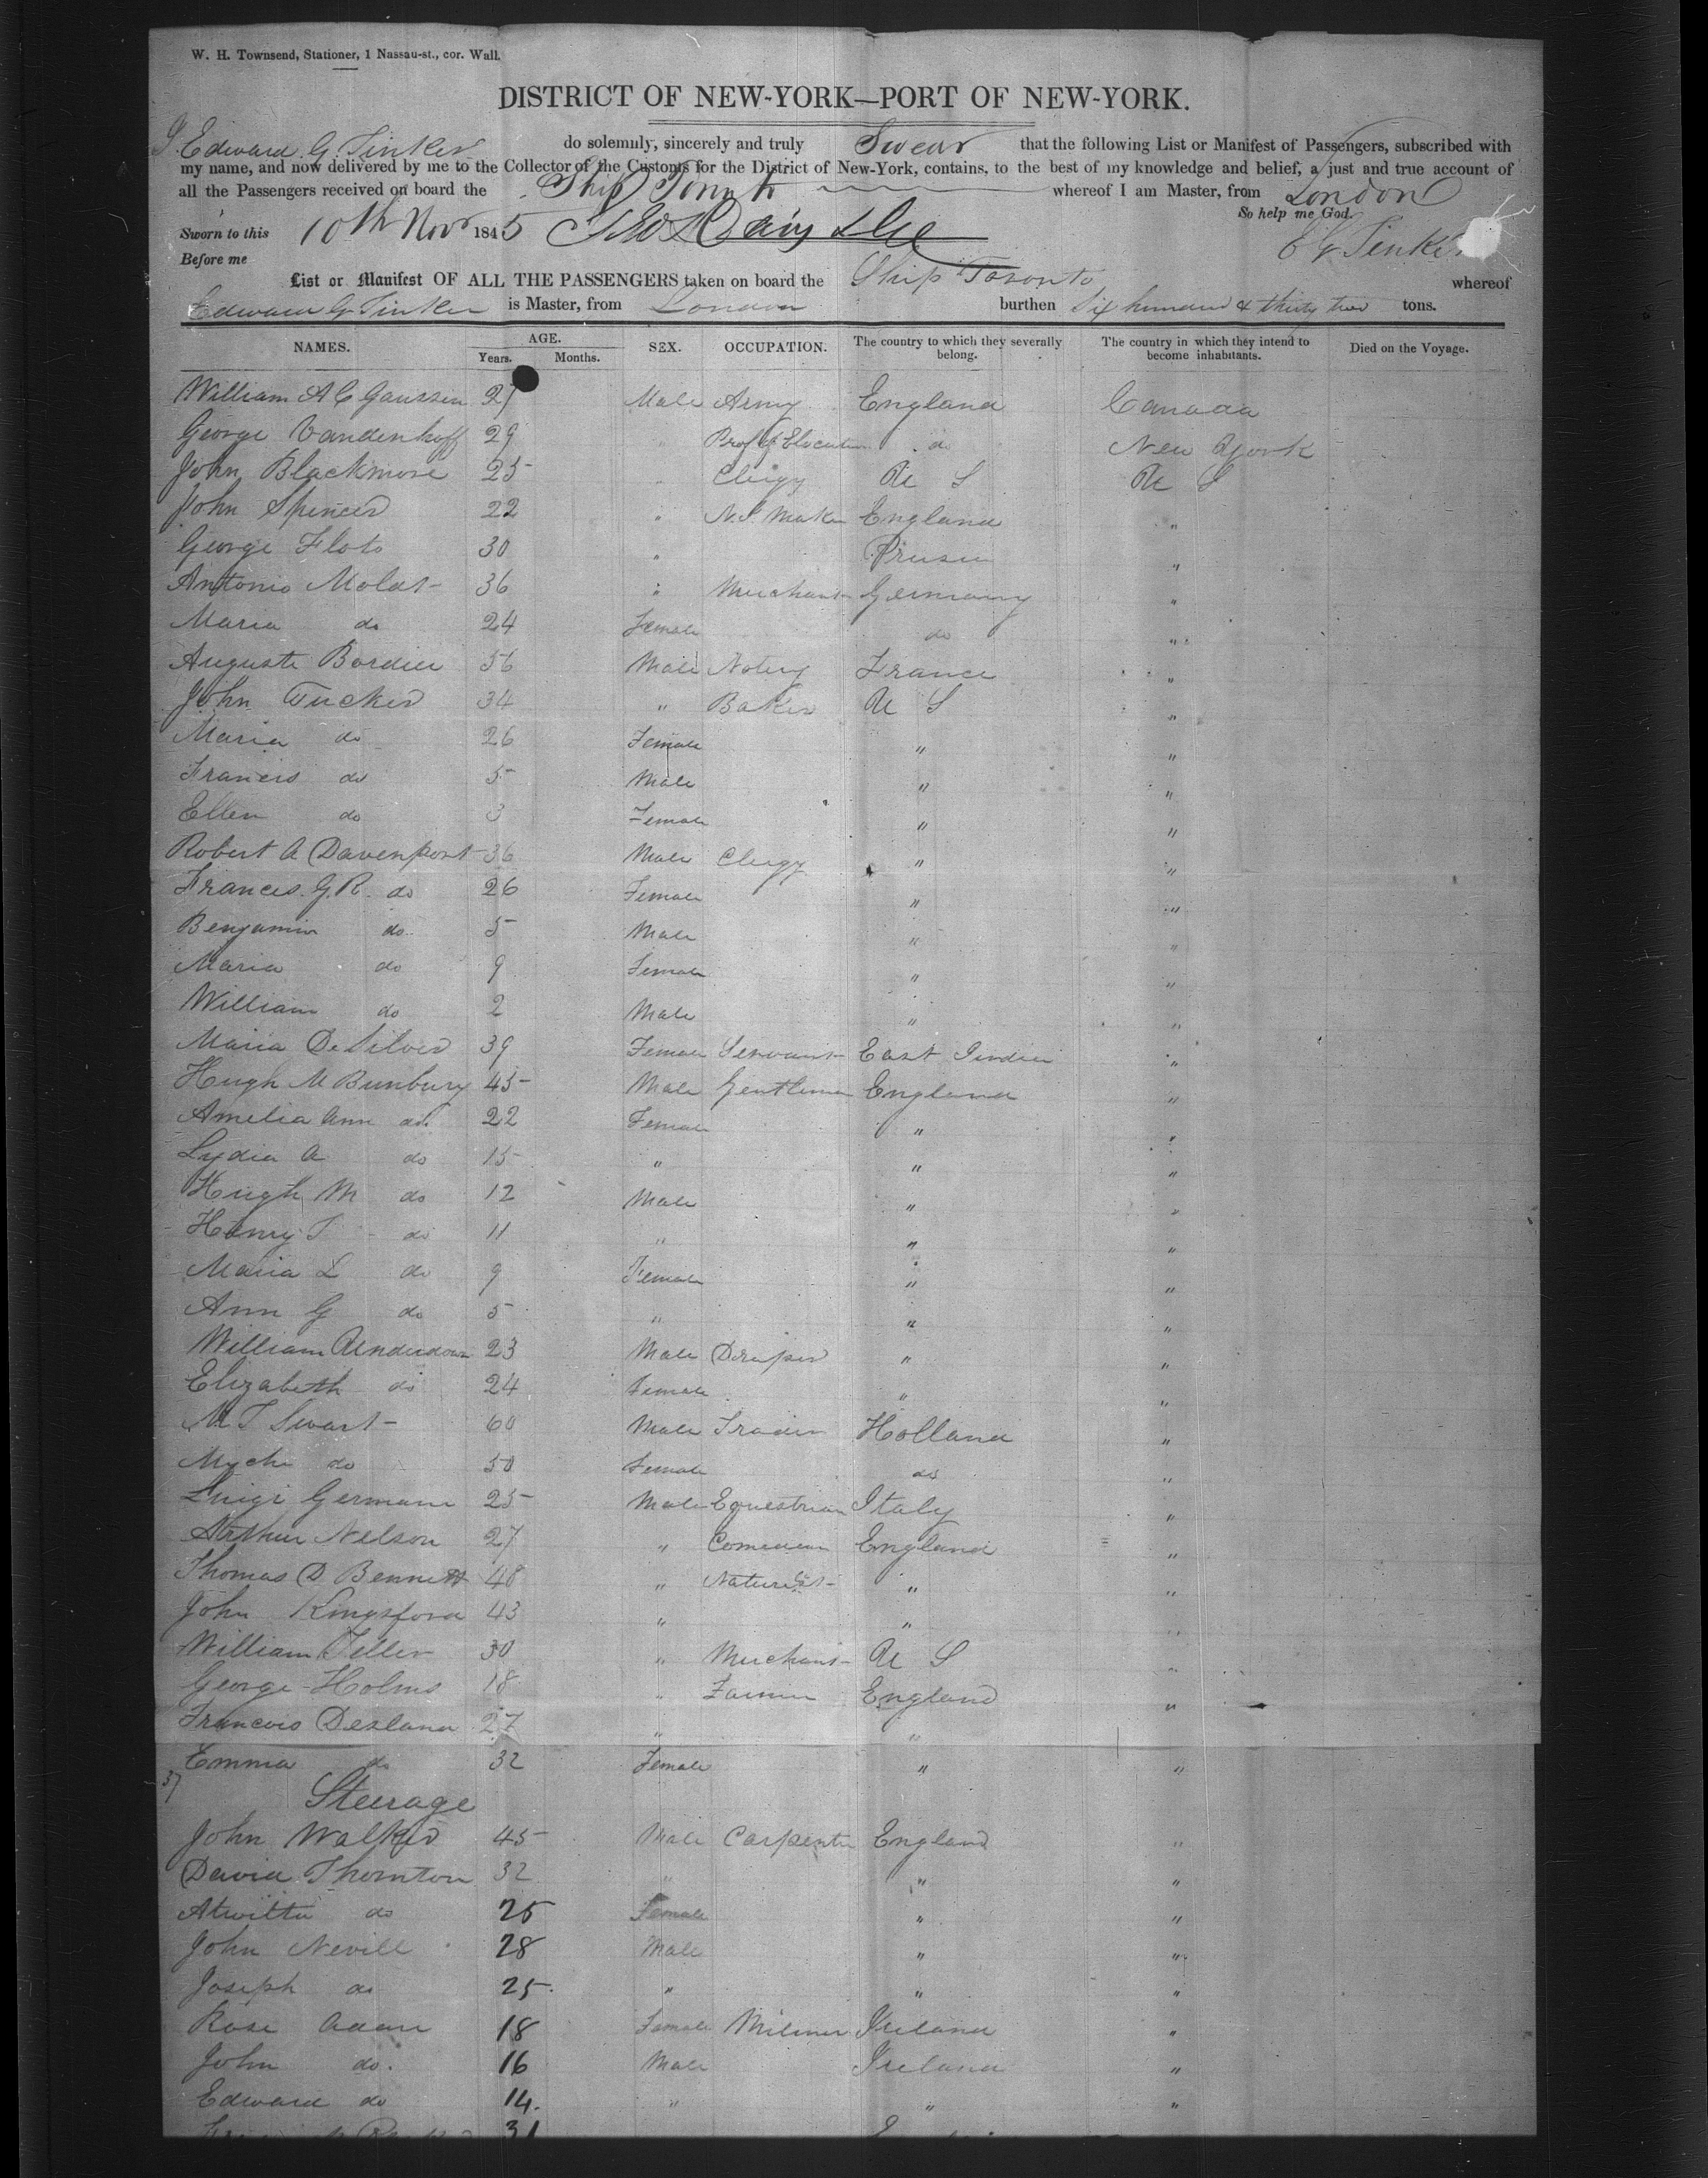 W. H. Townsend, Stationer, 1 Nassau-st., cor. Wall.
DISTRICT OF NEW-YORK—PORT OF NEW-YORK.
I. Edward G. Tinker do solemnly, sincerely and truly Swear that the following List or Manifest of Passengers, subscribed with
my name, and now delivered by me to the Collector of the Customs for the District of New-York, contains, to the best of my knowledge and belief, a just and true account of
all the Passengers received on board the Ship whereof I am Master, from London
So help me God.
Sworn to this 10th Nov 1845 E G Tinker
Before me
List or Manifest OF ALL THE PASSENGERS taken on board the Ship Toronto whereof
Edward G Tinker is Master, from London burthen Six hundred & thirty two tons.
NAMES. AGE. SEX. OCCUPATION. The country to which they severally belong. The country in which they intend to become inhabitants. Died on the Voyage.
Years. Months.
William A C Gaussen 27 Male Army England Canada
George Vandenhoff 29 " Prof of Elocution do New York
John Blackmore 25 " Clergy U S U S
John Spencer 22 " Maker England "
George Floto 30 " Prusia "
Antonio Molat 36 " Merchant Germany "
Maria do 24 Female do "
Auguste Bordieu 56 Male Notery France "
John Tucker 34 " Baker U S "
Maria do 26 Female " "
Francis do 5 Male " "
Ellen do 3 Female " "
Robert A Davenport 36 Male Clergy " "
Frances. G. R. do 26 Female " "
Benjamin do. 5 Male " "
Maria do 9 Female " "
William do 2 Male " "
Maria De Silver 39 Female Servant East Indien "
Hugh M Bunbury 45 Male Gentleman England "
Amelia Ann do. 22 Female " "
Lydia A do 15 " " "
Hugh M do 12 Male " "
Henry T do 11 " " "
Maria L do 9 Female " "
Ann G do 5 " " "
William Underdown 23 Male Draper " "
Elizabeth do 24 Female " "
M T Swart 60 Male Trader Holland "
Myche do 50 Female do "
Luigi Germani 25 Male Equestrian Italy "
Arthur Nelson 27 " Comedian England "
Thomas D Bennett 48 " Naturelist " "
John Kingsford 43 " " "
William Teller 30 " Merchant U S "
George Holms 18 " Farmer England "
Francois 27 " " "
Emma do 32 Female " "
37
Steerage
John Walker 45 Male Carpenter England "
David Thornton 32 " " "
do 25 Female " "
John Nevill 28 Male " "
Joseph do 25. " " "
Rose Adam 18 Female Miliner Ireland "
John do. 16 Male Ireland "
Edward do 14. " " "
31